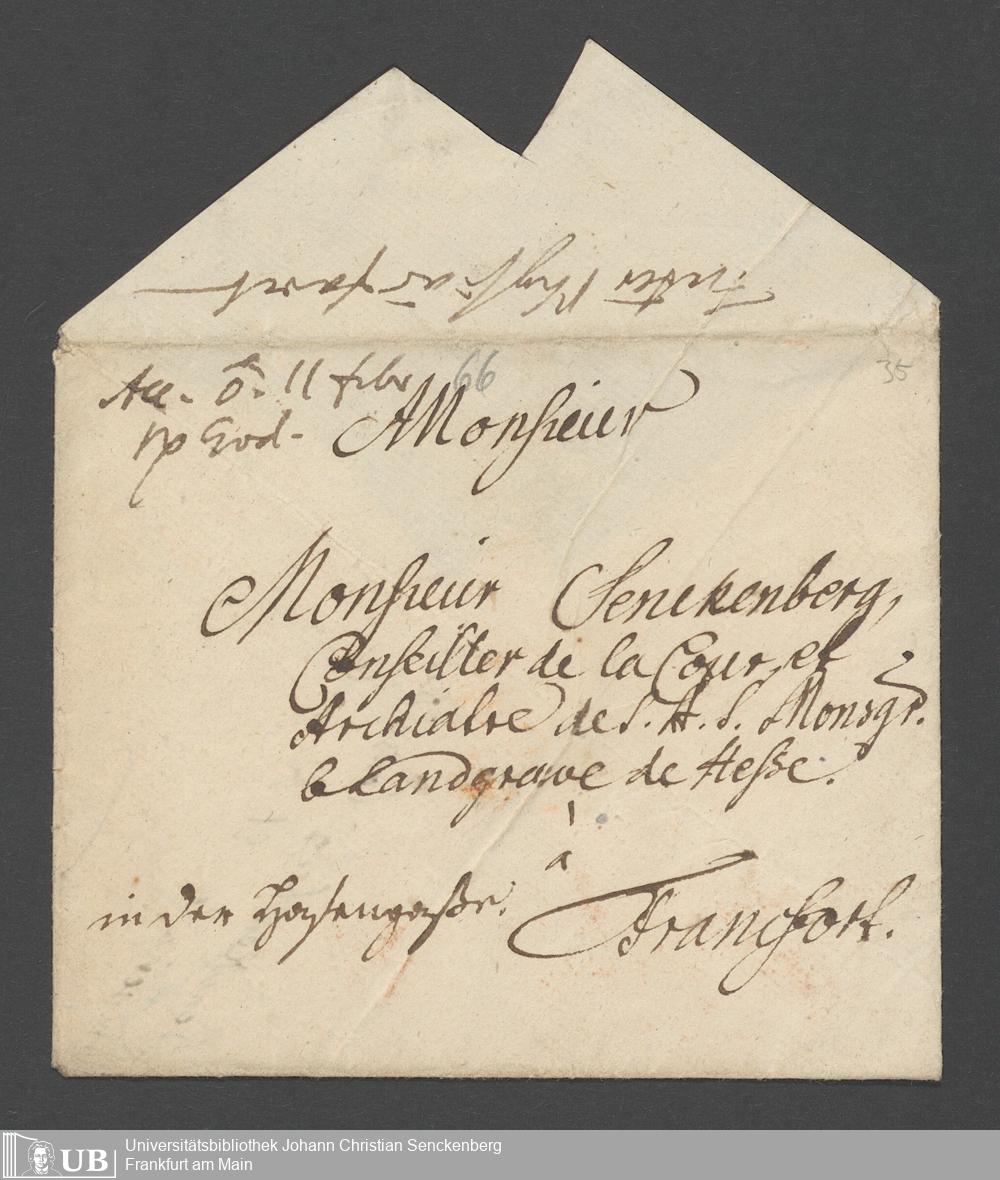 Acc. 11 febr 66
35
Monsieur
Monsieur Senckenberg,
Conseiller de la Cour, et
Archiatre de S. A. S. Monsgr.
le Landgrave de Hesse.
à
in der Hasengaße.
Francfort.
UB
Universitätsbibliothek Johann Christian Senckenberg
Frankfurt am Main